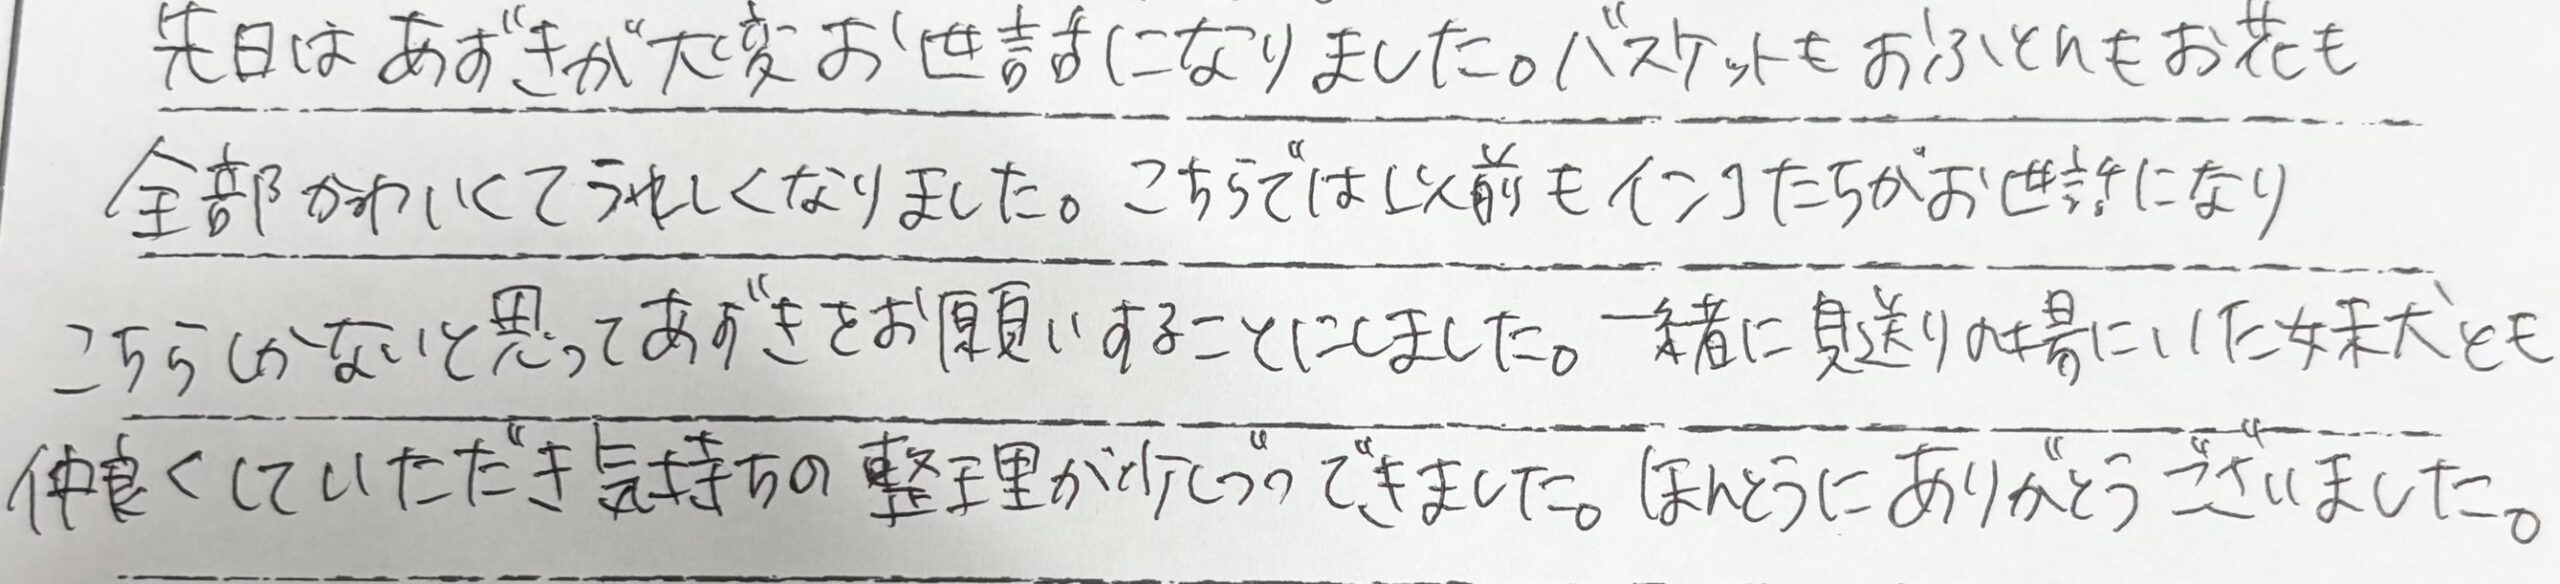 先日はあずきが大変お世話になりました。バスケットもおふとんもお花も
全部かわいくてうれしくなりました。こちらでは以前もインコたちがお世話になり
こちらしかないと思ってあずきをお願いすることにしました。一緒に見送りの場にいた妹犬とも
仲良くしていただき気持ちの整理が少しづつできました。ほんとうにありがとうございました。